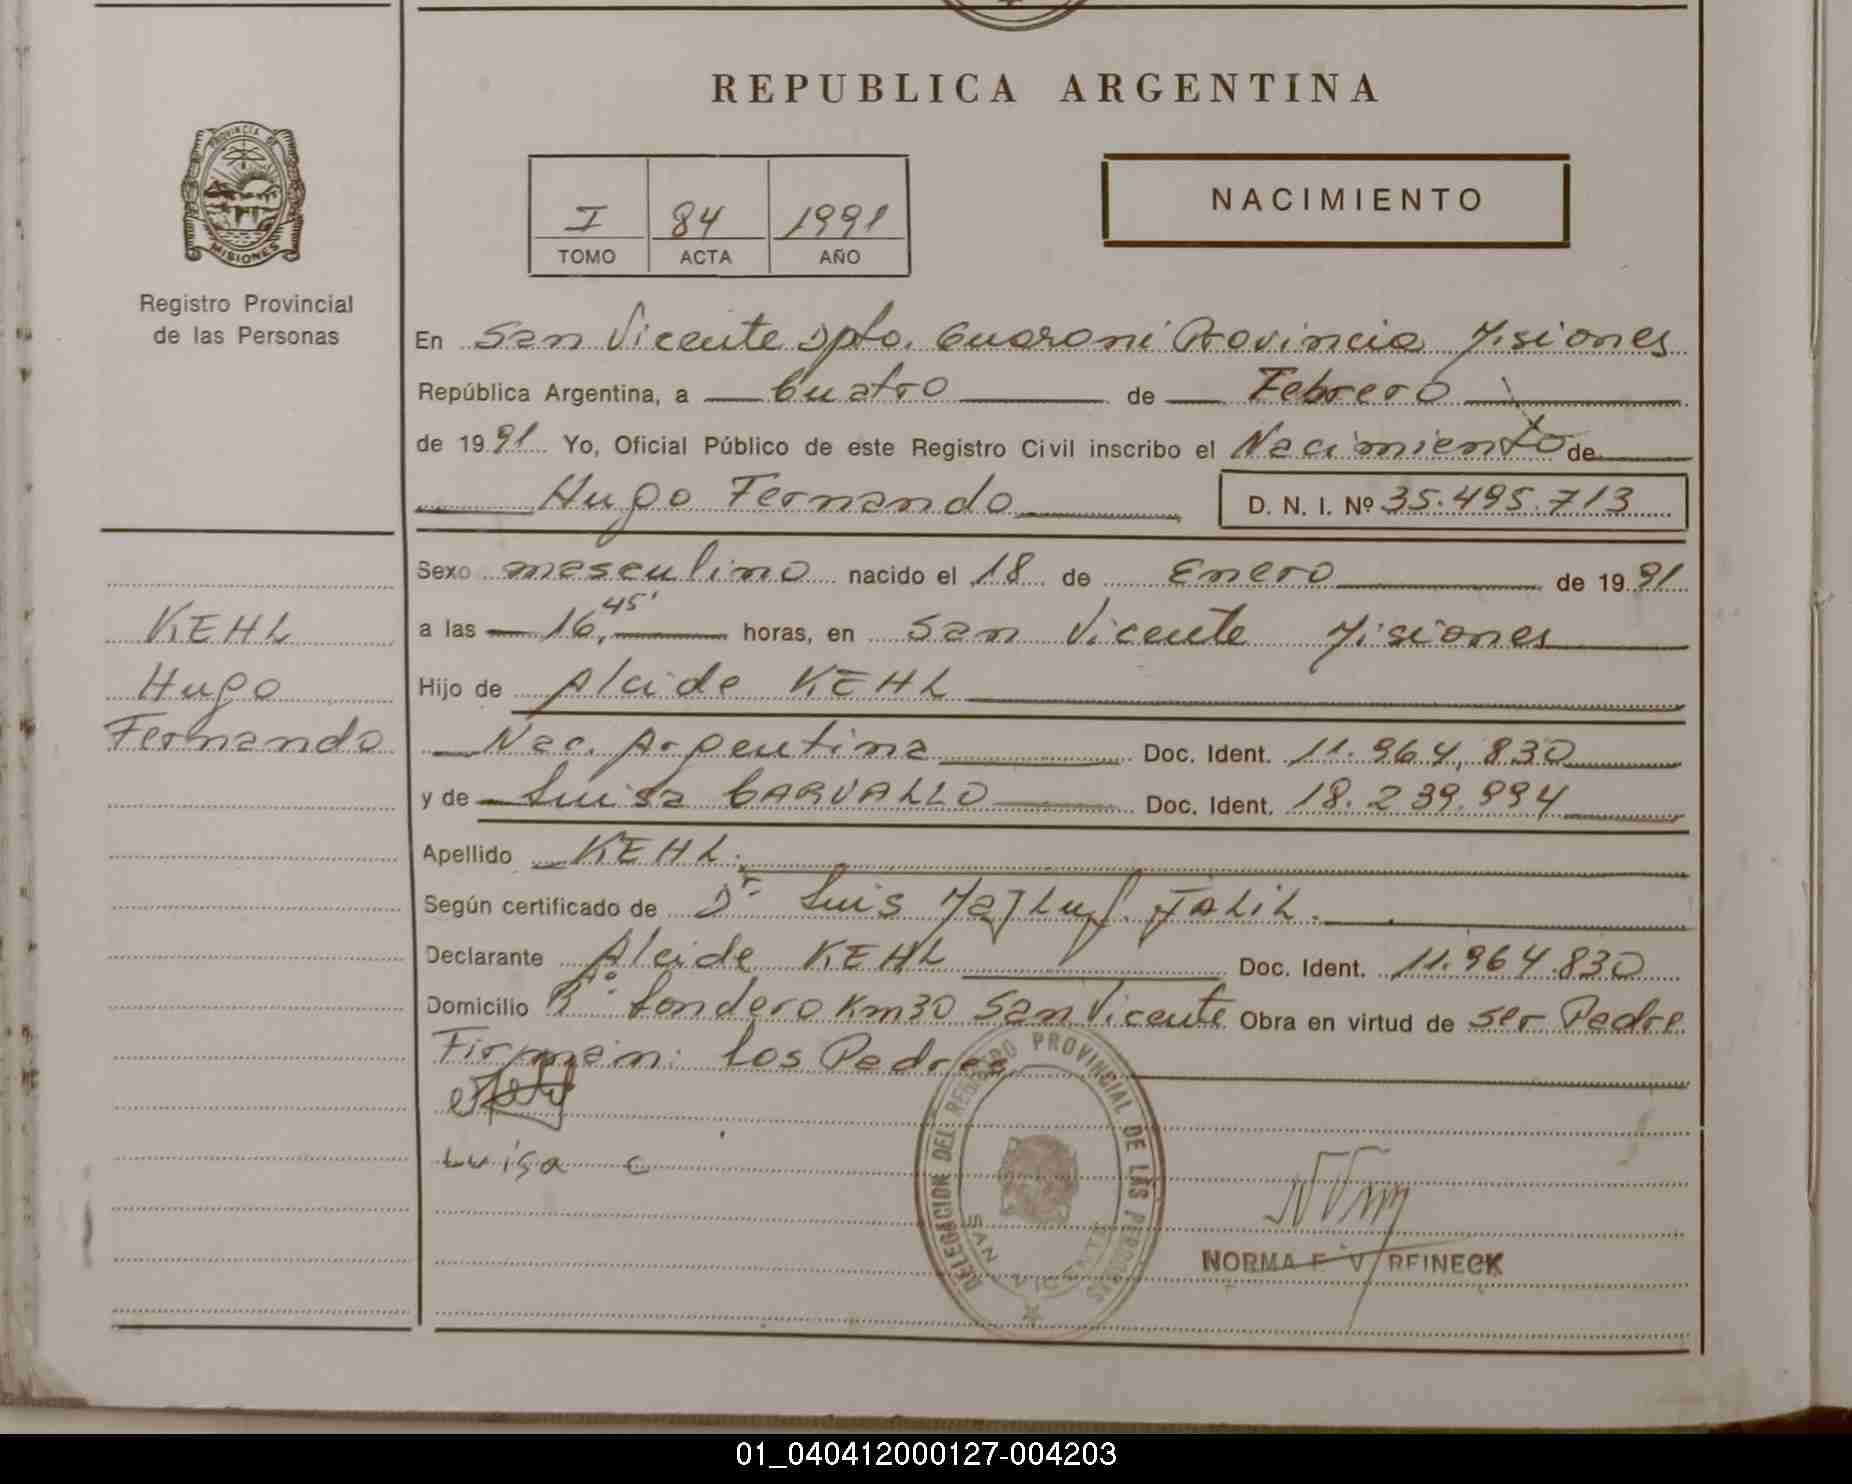 REPUBLICA ARGENTINA
PROVINCIA DE
MISIONES
Registro Provincial
de las Personas
I 84 1991
TOMO ACTA AÑO
NACIMIENTO
En San Vicente Dpto. Guarani Provincia Misiones
República Argentina, a Cuatro de Febrero
de 1991 Yo, Oficial Público de este Registro Civil inscribo el Nacimiento de
Hugo Fernando D. N. I. Nº 35.495.713
Sexo masculino nacido el 18 de Enero de 1991
a las 16,45' horas, en San Vicente Misiones
Hijo de Alcide KEHL
Nac. Argentina Doc. Ident. 11.964,830
y de Luisa CARVALLO Doc. Ident. 18.239.994
Apellido KEHL.
Según certificado de Dr. Luis JALIL.
Declarante Alcide KEHL Doc. Ident. 11.964.830
Domicilio Bº Londero Km30 San Vicente Obra en virtud de ser Padre
Firman: los Padres
Luisa C
KEHL
Hugo
Fernando
DELEGACION DEL REGISTRO PROVINCIAL DE LAS PERSONAS
SAN VICENTE
NORMA F. V. REINECK
01_040412000127-004203